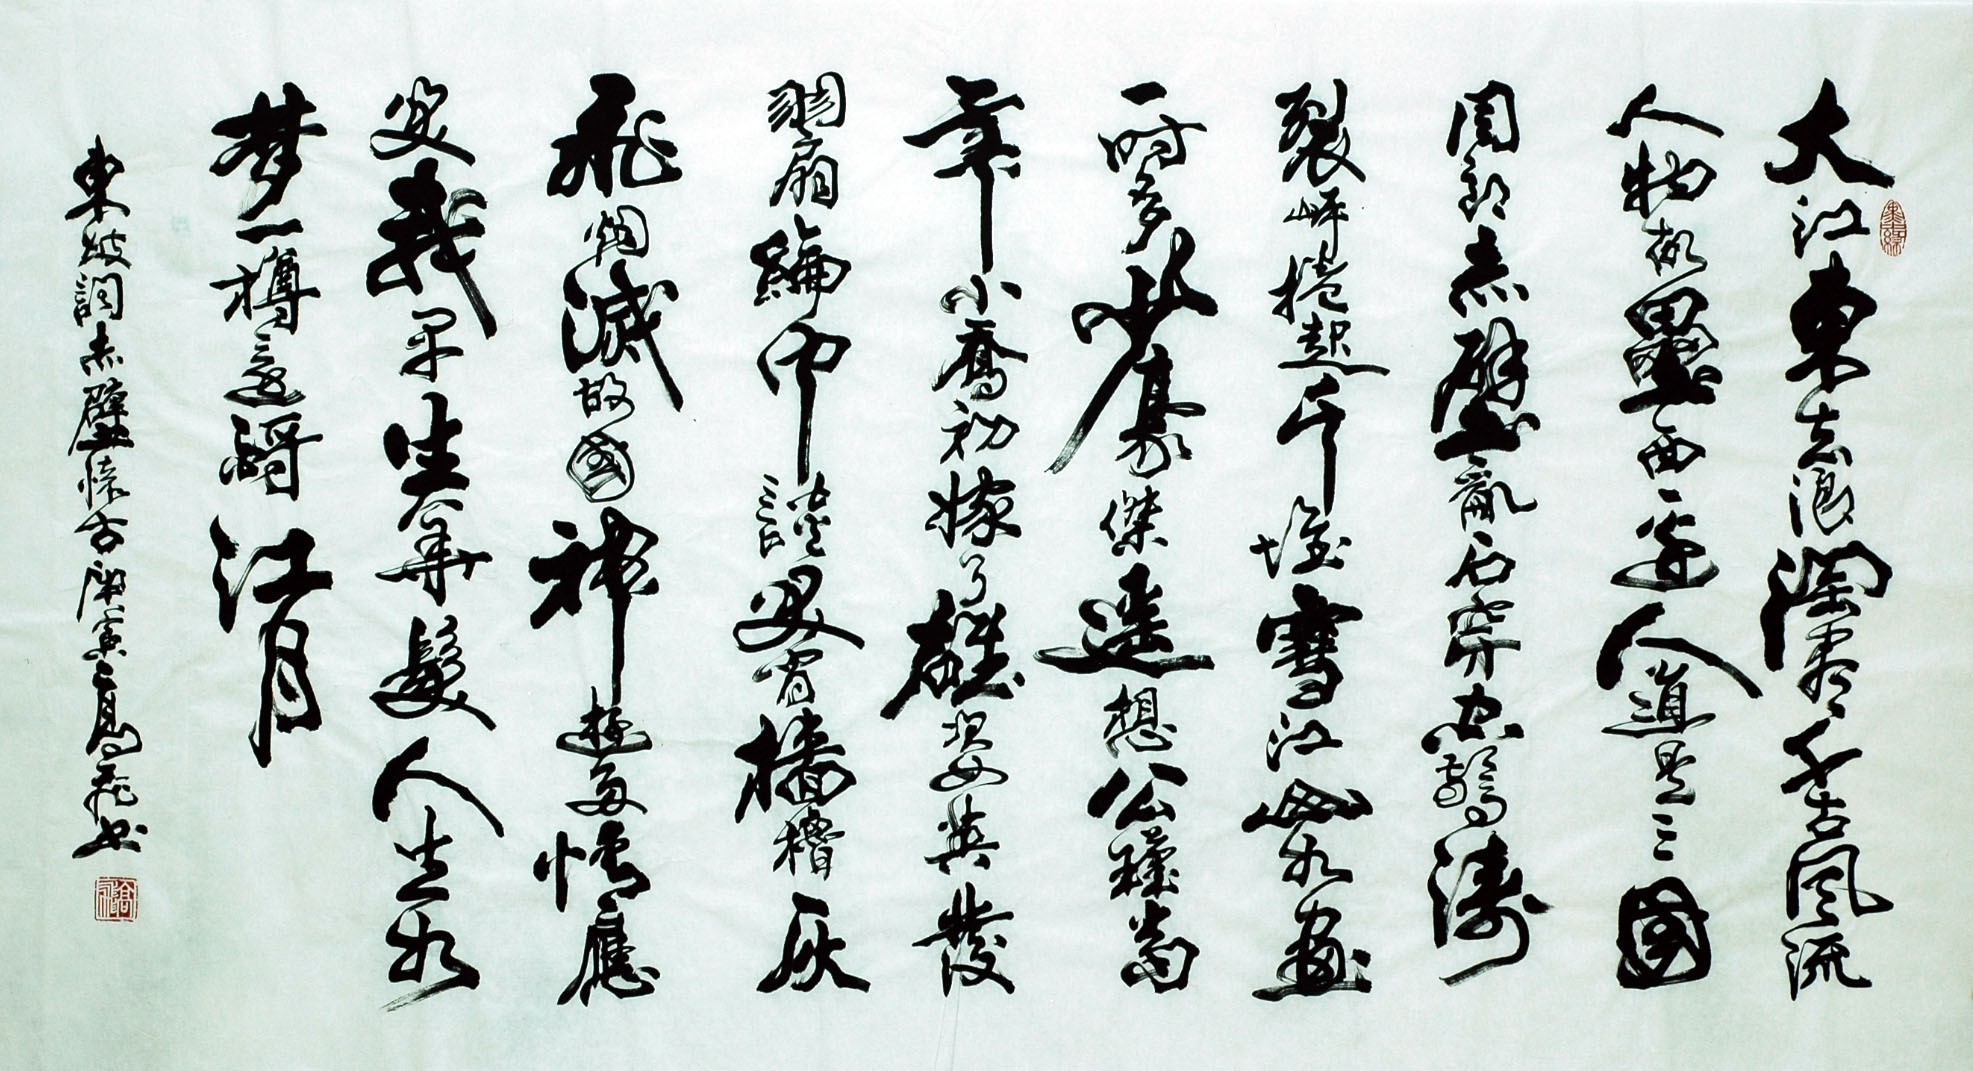 大江東去浪淘盡千古風流
人物故壘西邊人道是三國
周郎赤壁亂石穿空驚濤
裂岸捲起千堆雪江山如畫
一時多少豪傑遙想公瑾當
年小喬初嫁了雄姿英發
羽扇綸巾談笑間檣櫓灰
飛烟滅故國神遊多情應
笑我早生華髮人生如
夢一樽還酹江月
東坡詞赤壁懷古庚寅高飛书